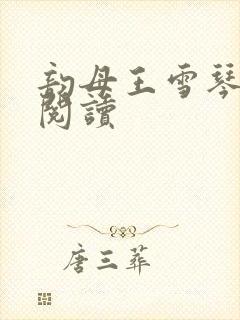 韵母王雪琴
閱讀
唐三葬